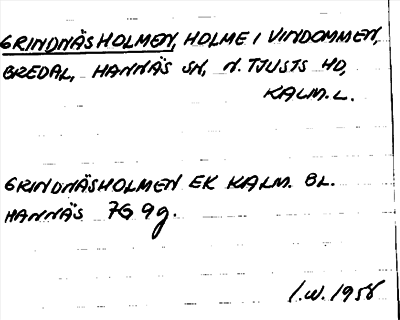 GRINDNÄSHOLMEN, HOLME I VINDOMMEN,
BREDAL, HANNÄS SN, N. TJUSTS HD,
KALM. L.
GRINDNÄSHOLMEN EK KALM. BL.
HANNÄS 7G 9g.
I.W. 1958